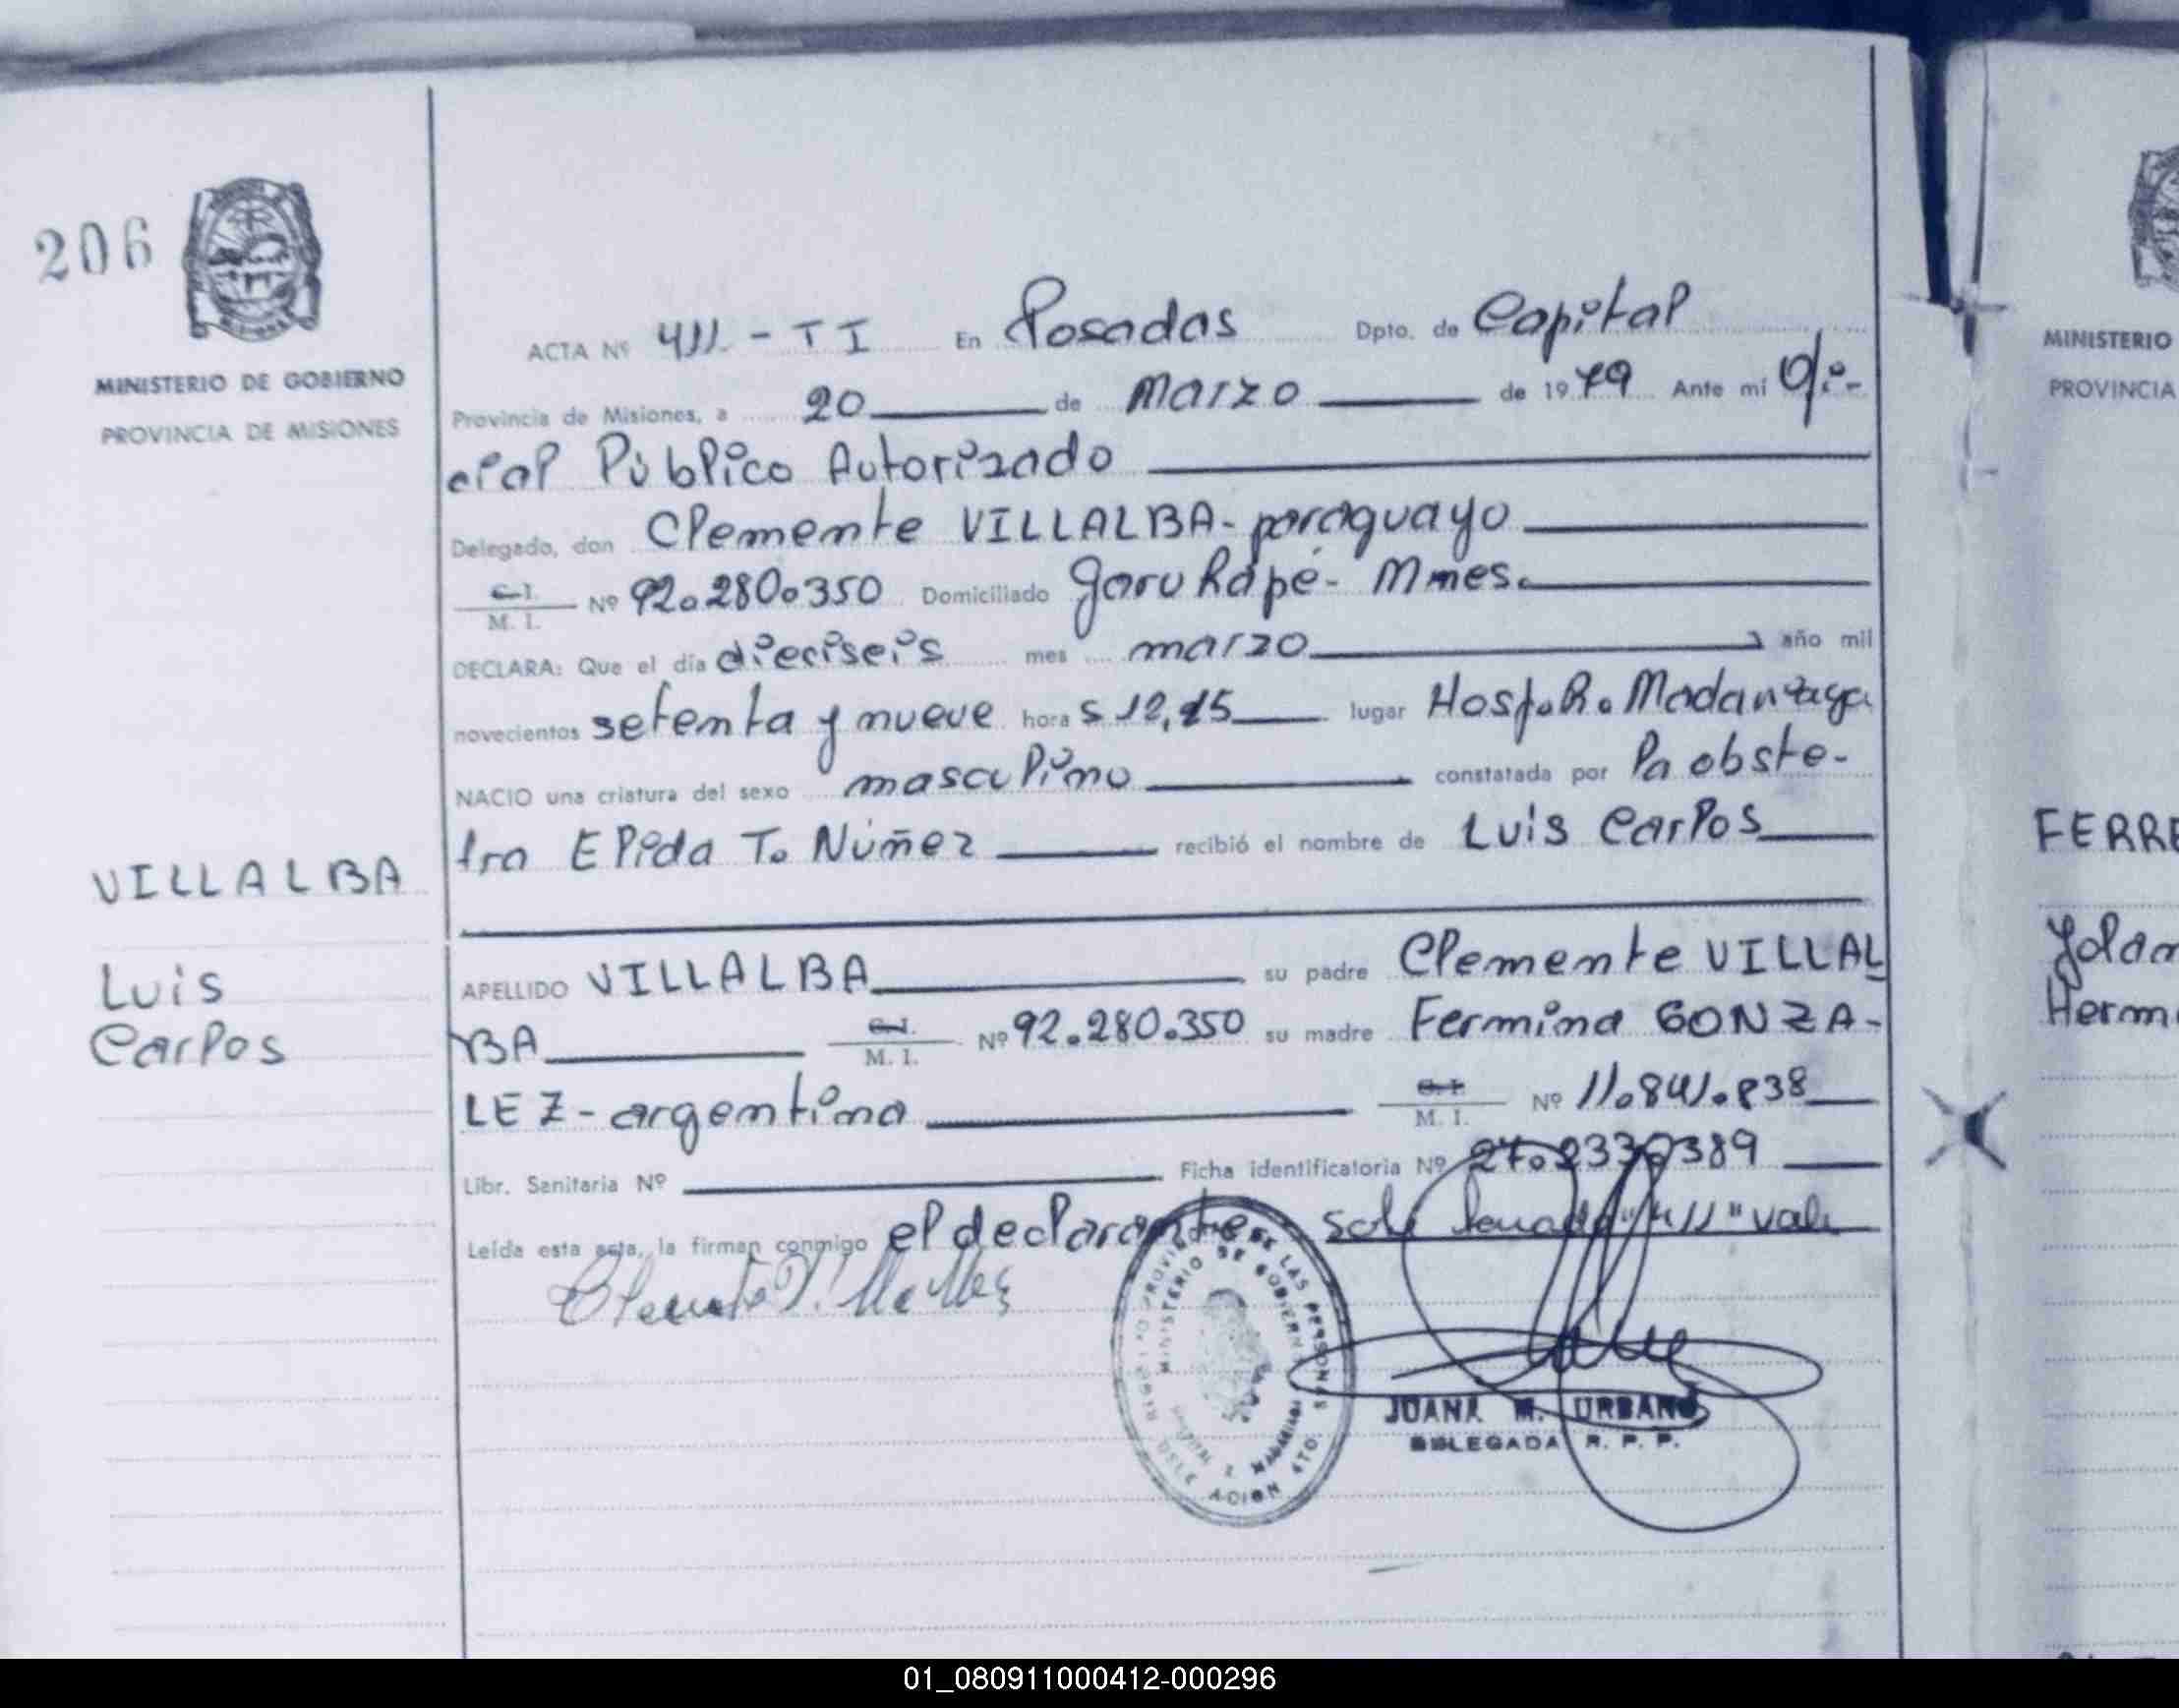 206
MINISTERIO DE GOBIERNO
PROVINCIA DE MISIONES
VILLALBA
Luis
Carlos
ACTA Nº 411 - TI En Posadas Dpto. de Capital
Provincia de Misiones, a 20 de Marzo de 1979 Ante mi Ofi-
cial Público Autorizado
Delegado, don Clemente VILLALBA - paraguayo
C. I.
M. I. Nº 92.280.350 Domiciliado Garuhapé - Mnes.
DECLARA: Que el día dieciseis mes marzo año mil
novecientos setenta y nueve hora s lugar Hosp. R. Madariaga
NACIO una criatura del sexo masculino constatada por la obste-
tra Elida T. Núñez recibió el nombre de Luis Carlos
APELLIDO VILLALBA su padre Clemente VILLAL
BA C. I.
M. I. Nº 92.280.350 su madre Fermina GONZA-
LEZ - argentina C. I.
M. I. Nº 11.841.838
Libr. Sanitaria Nº Ficha identificatoria Nº
Leída esta acta, la firman conmigo el declarante "411" vale
Clemente Villalba
MINISTERIO DE GOBIERNO
DE LAS PERSONAS
JUANA M. URBANO
DELEGADA R. P. P.
MINISTERIO
PROVINCIA
FERRE
Yolan
Herm
01_080911000412-000296